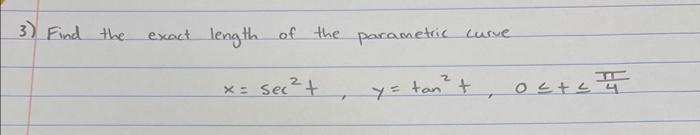 3) Find the exact length of the parametric curve
x = sec²t , y = tan²t , 0 ≤ t ≤ π/4